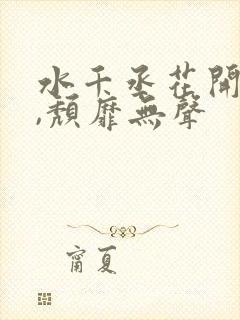 水干丞花開
,頹靡無聲
甯夏